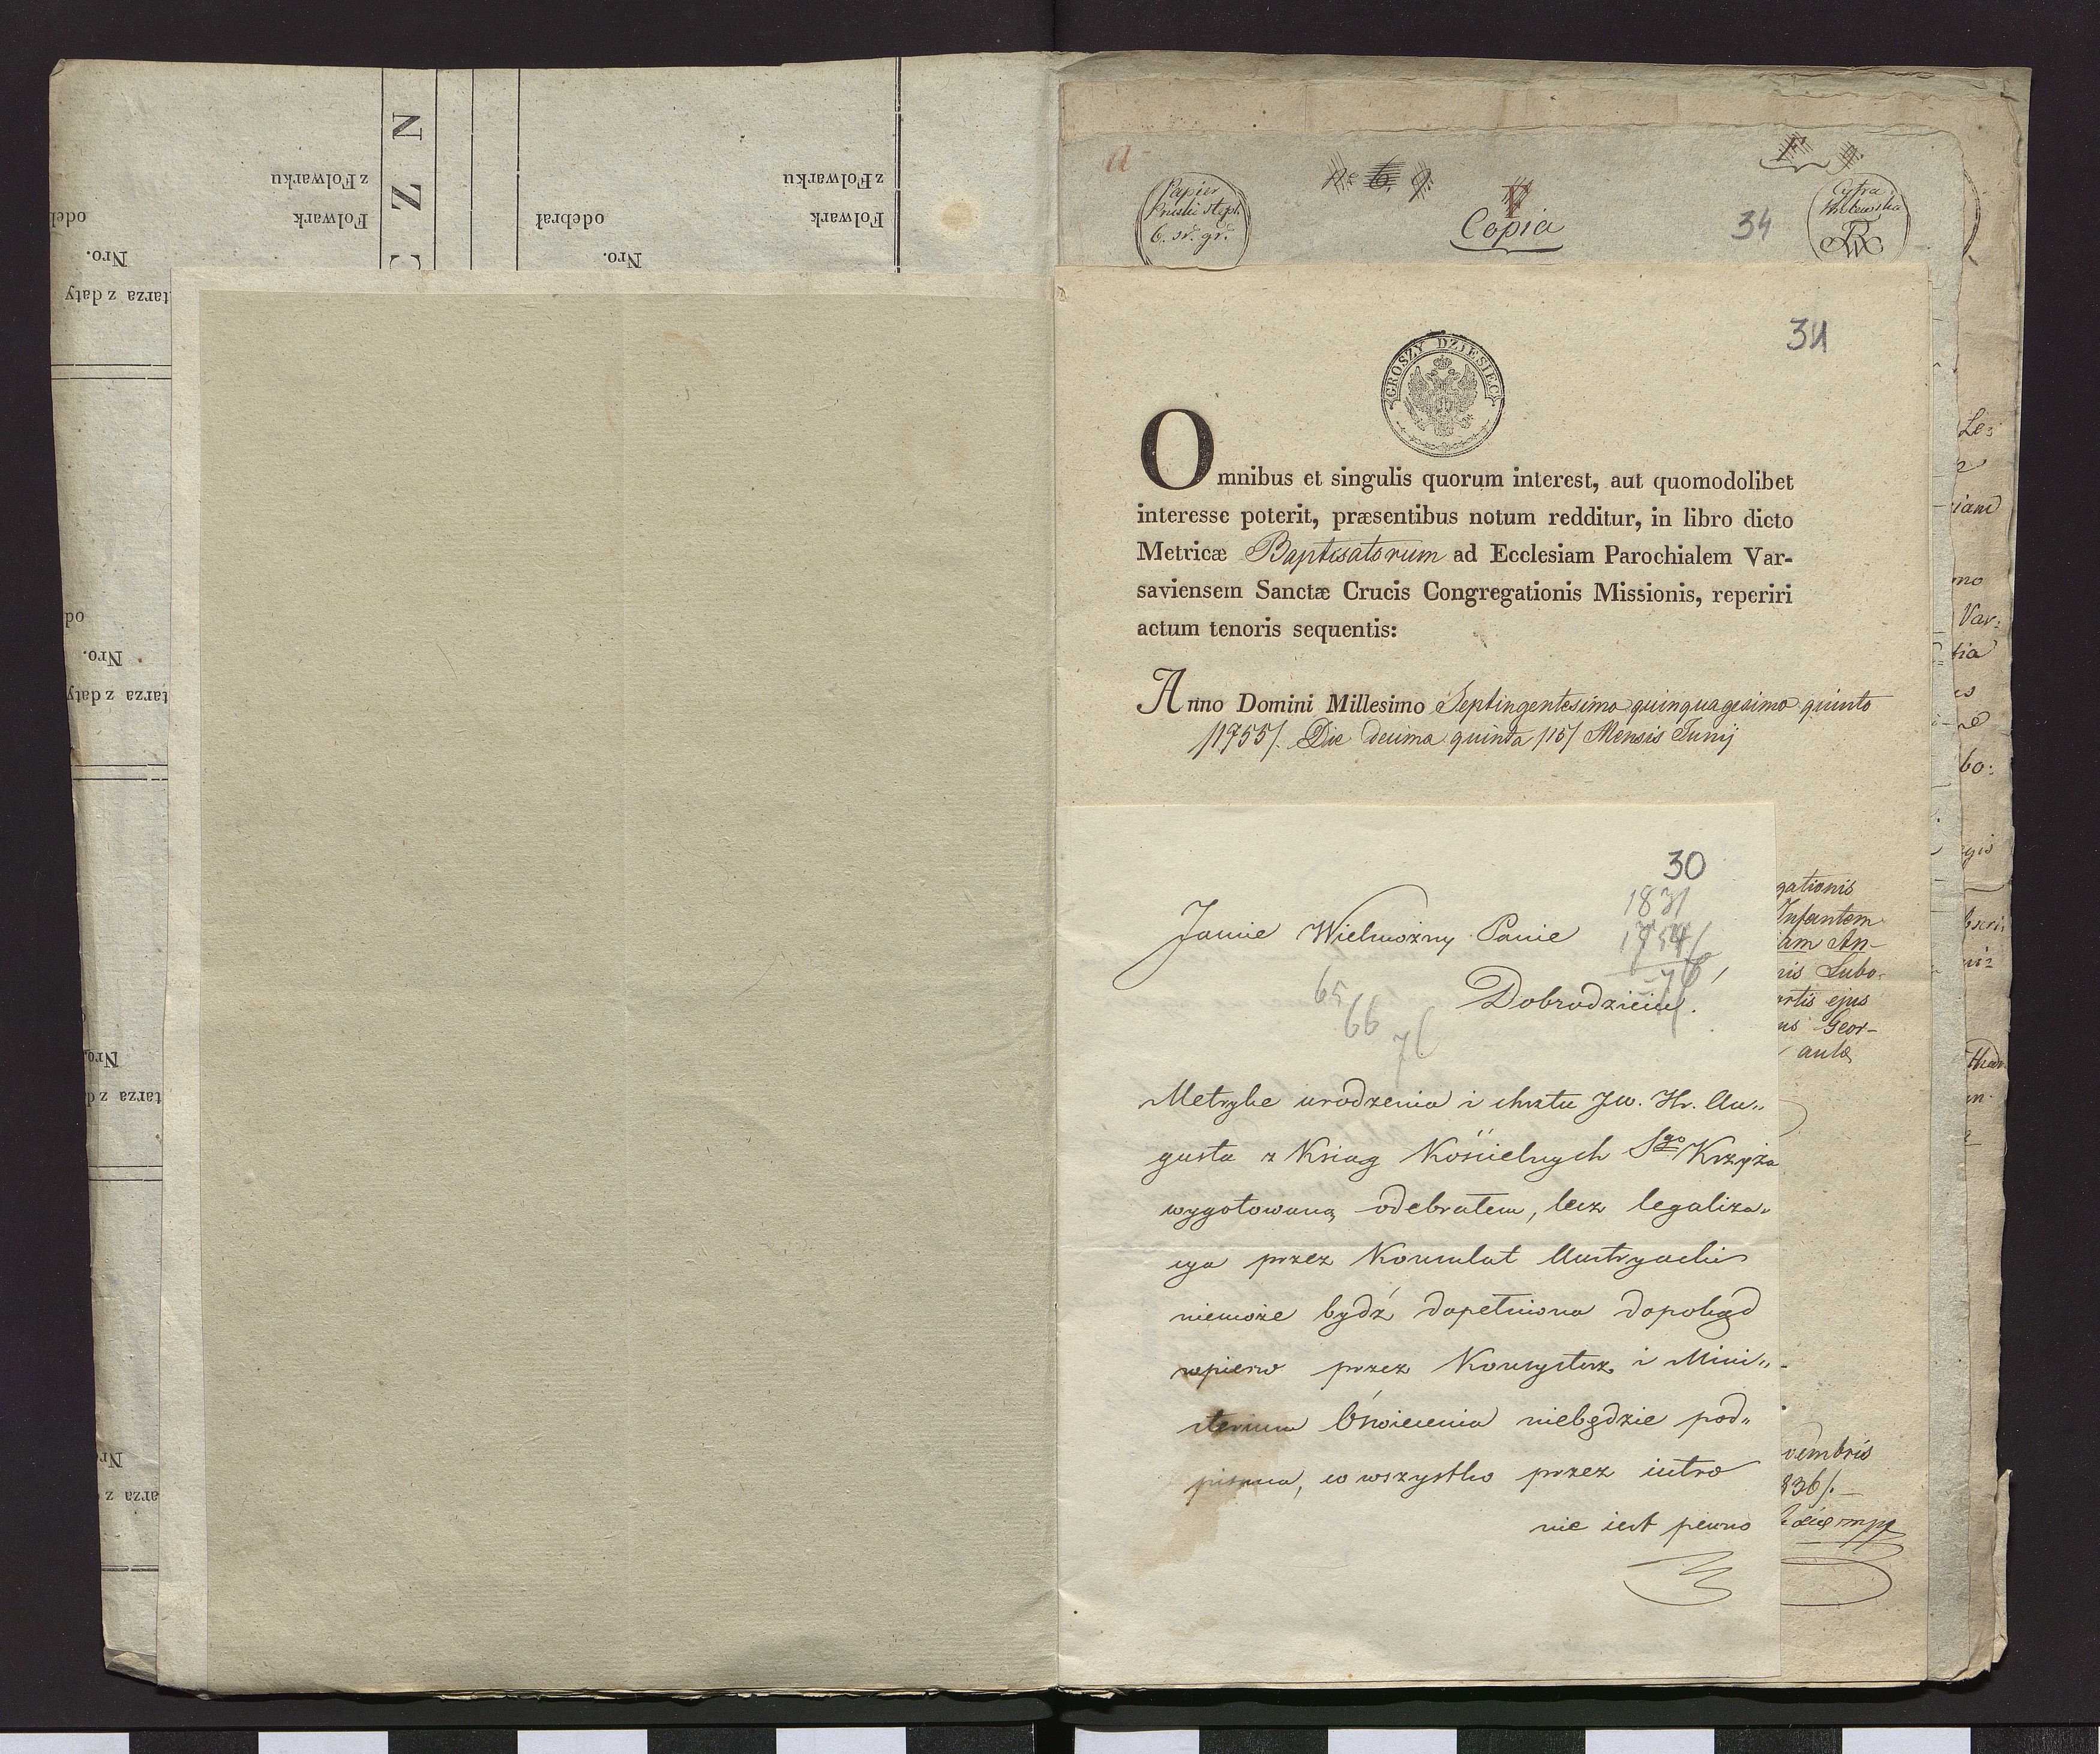 N Z
z Folwarku
Folwark
odebrał
Nro.
z Folwarku
Folwark
Nro.
tarza z daty
Nro.
tarza z daty
Nro.
tarza z d
arza z
a
Papier
Pruski stępl.
6. sr. gr.
No 6. 9.
V
Copia
34
Cyfra
34
GROSZY DZIESIĘĆ
Omnibus et singulis quorum interest, aut quomodolibet
interesse poterit, præsentibus notum redditur, in libro dicto
Metricæ Baptisatorum ad Ecclesiam Parochialem Var-
saviensem Sanctæ Crucis Congregationis Missionis, reperiri
actum tenoris sequentis:
Anno Domini Millesimo Septingentesimo quinquagesimo quinto
/1755/. Die decima quinta /15/ Mensis Junij
gationis
Infantem
iam An-
nis Lubo-
ortis ejus
us Geor-
aulæ
vembris
836/.
30
1831
1754
65
66
76
Jaśnie Wielmożny Panie
Dobrodzieiu!
Metrykę urodzenia i chrztu JW. Hr. Au"
gusta z Ksiąg Kościelnych Sgo Krzyża
wygotowaną odebrałem, lecz legaliza"
cya przez Konsulat Austryacki
niemoże bydź dopełniona dopokąd
wpierw przez Konsystorz i Mini"
sterium Oświecenia niebędzie pod"
pisana, co wszystko przez iutro
nie iest pewno
Le=
iam
mo
Var=
tia
bo: